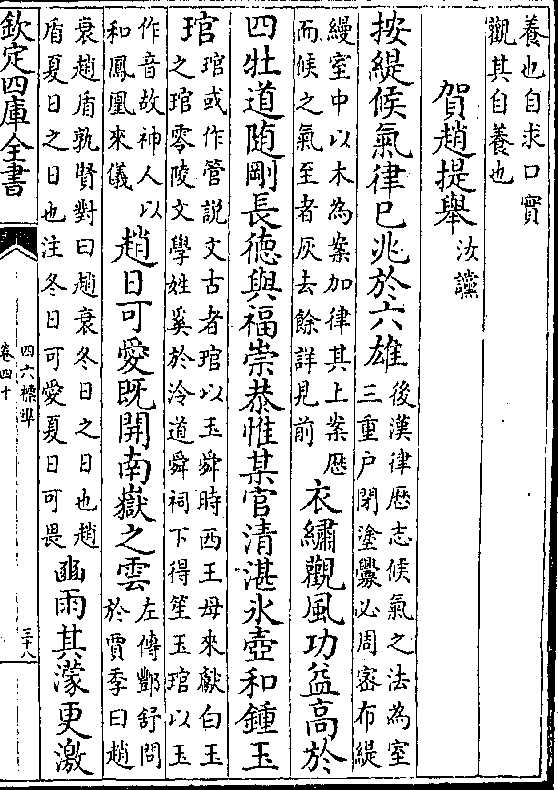 養也自求口實
觀其自養也
賀趙提舉汝讜
按緹候氣律已兆於六雄後漢律歷志候氣之法為室
三重户閉塗釁必周密布緹
縵室中以木為案加律其上案歷
而候之氣至者灰去餘詳見前衣繡觀風功益高於
四牡道随剛長德與福崇恭惟某官清湛氷壺和鍾玉
琯琯或作管説文古者琯以玉舜時西王母來獻白玉
之琯零陵文學姓奚於泠道舜祠下得笙玉琯以玉
作音故神人以
和鳳凰來儀趙日可愛既開南嶽之雲左傳酆舒問
於賈季曰趙
衰趙盾孰賢對曰趙衰冬日之日也趙
盾夏日之日也注冬日可愛夏日可畏豳雨其濛更激
欽定四庫全書
四六標準
卷四十
三十八